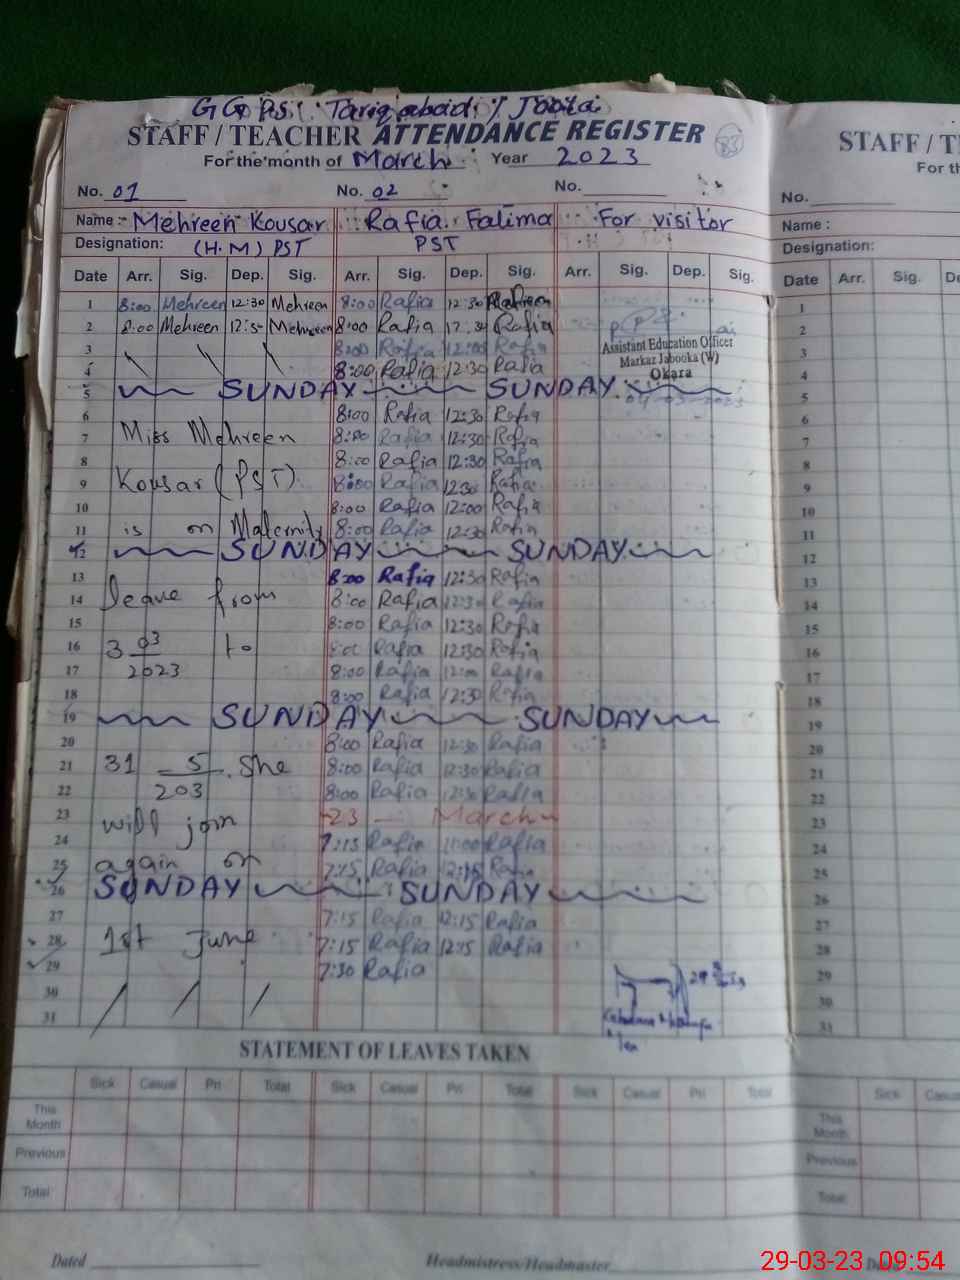 STAFF / TEACHER ATTENDANCE REGISTER
For the month of March Year 2023
No. 01 No. 02 No.
Name :- Mehreen Kousar Rafia Fatima For visitor
Designation: (H.M) PST PST
Date Arr. Sig. Dep. Sig. Arr. Sig. Dep. Sig. Arr. Sig. Dep. Sig.
1 8:00 Mehreen 12:30 Mehreen 8:00 Rafia 12:30
2 8:00 Mehreen Mehreen 8:00 Rafia 12:30 Rafia
3 8:00 Rafia 12:00 Rafia
4 8:00 Rafia 12:30 Rafia
Assistant Education Officer
Markaz Jabooka (W)
Okara
5 SUNDAY SUNDAY
04-03-2023
6 8:00 Rafia 12:30 Rafia
7 Miss Mehreen 8:00 Rafia 12:30 Rafia
8 8:00 Rafia 12:30 Rafia
9 Kousar (PST) 8:00 Rafia 12:30 Rafia
10 8:00 Rafia 12:00 Rafia
11 is on Maternity 8:00 Rafia 12:30 Rafia
12 SUNDAY SUNDAY
13 8:00 Rafia 12:30 Rafia
14 Leave from 8:00 Rafia 12:30 Rafia
15 8:00 Rafia 12:30 Rafia
16 3 03 to 8:00 Rafia 12:30 Rafia
17 2023 8:00 Rafia 12:00 Rafia
18 8:00 Rafia 12:30 Rafia
19 SUNDAY SUNDAY
20 8:00 Rafia 12:30 Rafia
21 31 5 . She 8:00 Rafia 12:30 Rafia
22 203 8:00 Rafia 12:30 Rafia
23 will join 23 — March
24 7:15 Rafia 11:00 Rafia
25 again on 7:15 Rafia 12:15 Rafia
26 SUNDAY SUNDAY
27 7:15 Rafia 12:15 Rafia
28 1st June 7:15 Rafia 12:15 Rafia
29 7:30 Rafia
30
31
STATEMENT OF LEAVES TAKEN
Sick Casual Pri Total Sick Casual Pri Total Sick Casual Pri Total
This Month
Previous
Total
Dated Headmistress/Headmaster
STAFF / T
For th
No.
Name :
Designation:
Date Arr. Sig.
1
2
3
4
5
6
7
8
9
10
11
12
13
14
15
16
17
18
19
20
21
22
23
24
25
26
27
28
29
30
31
Sick
This Month
Previous
Total
29-03-23 09:54